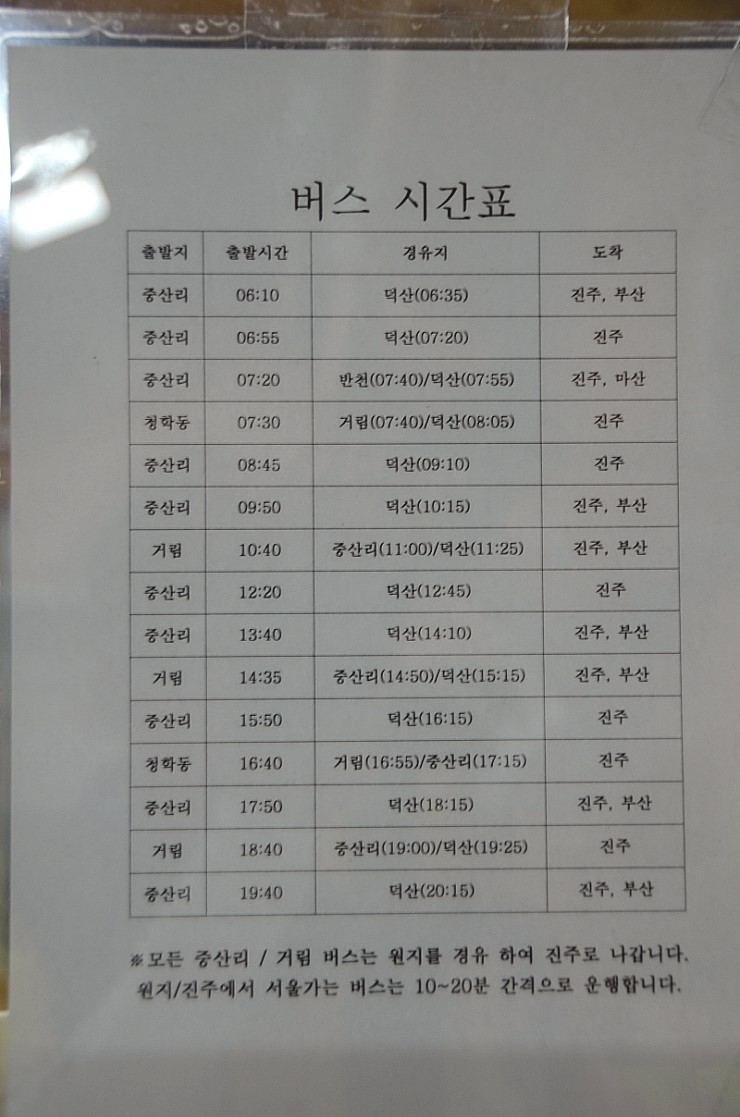 버스 시간표
출발지 출발시간 경유지 도착
중산리 06:10 덕산(06:35) 진주, 부산
중산리 06:55 덕산(07:20) 진주
중산리 07:20 반천(07:40)/덕산(07:55) 진주, 마산
청학동 07:30 거림(07:40)/덕산(08:05) 진주
중산리 08:45 덕산(09:10) 진주
중산리 09:50 덕산(10:15) 진주, 부산
거림 10:40 중산리(11:00)/덕산(11:25) 진주, 부산
중산리 12:20 덕산(12:45) 진주
중산리 13:40 덕산(14:10) 진주, 부산
거림 14:35 중산리(14:50)/덕산(15:15) 진주, 부산
중산리 15:50 덕산(16:15) 진주
청학동 16:40 거림(16:55)/중산리(17:15) 진주
중산리 17:50 덕산(18:15) 진주, 부산
거림 18:40 중산리(19:00)/덕산(19:25) 진주
중산리 19:40 덕산(20:15) 진주, 부산
※모든 중산리 / 거림 버스는 원지를 경유 하여 진주로 나갑니다.
원지/진주에서 서울가는 버스는 10~20분 간격으로 운행합니다.